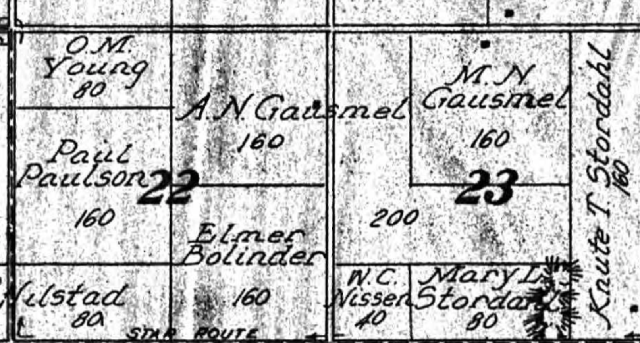 O.M.
Young
80
A.N. Gausmel
160
M.N.
Gausmel
160
Knute T Stordahl
160
Paul
Paulson
160
22
23
200
Elmer
Bolinder
160
Nilstad
80
W.C.
Nissen
40
Mary L
Stordahl
80
STAR ROUTE